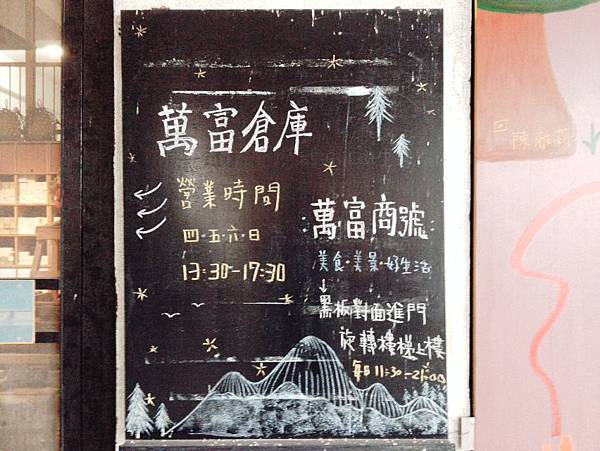 萬富倉庫
營業時間
四·五·六·日
13:30-17:30
萬富商號
美食·美景·好生活
↓
黑板對面進門
旋轉樓梯上樓
每日11:30-21:00